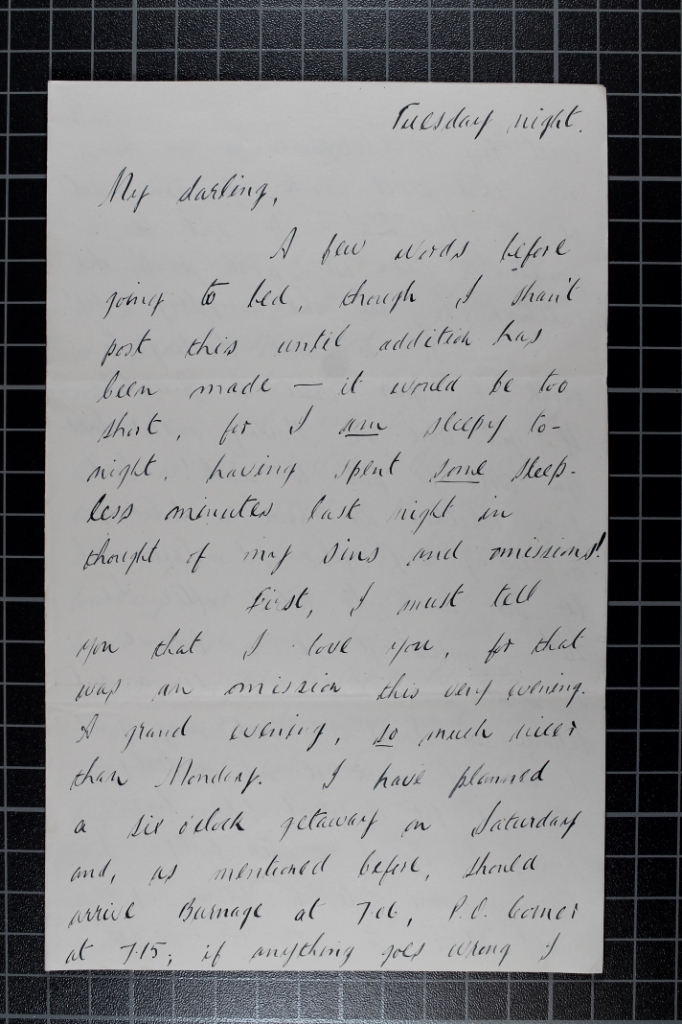 Tuesday night.
My darling,
A few words before
going to bed, though I shan't
post this until addition has
been made — it would be too
short, for I am sleepy to-
night, having spent some sleep-
less minutes last night in
thought of my sins and omissions!
First, I must tell
you that I love you, for that
was an omission this very evening.
A grand evening, so much nicer
than Monday. I have planned
a six o'clock getaway on Saturday
and, as mentioned before, should
arrive Burnage at 7.06, P.O. Corner
at 7.15; if anything goes wrong I